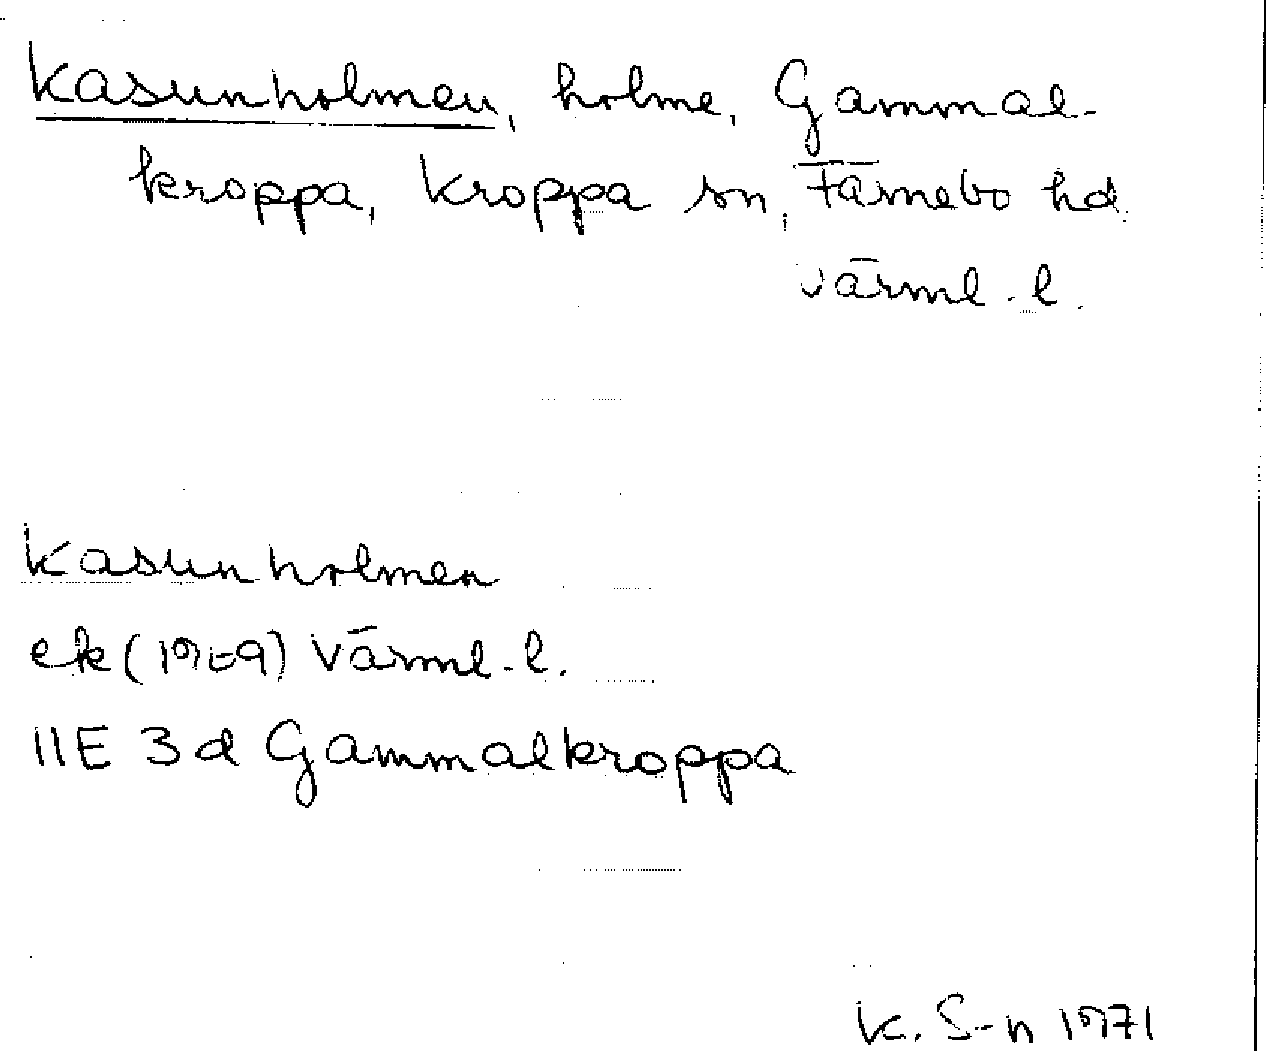 Kasunholmen, holme, Gammal-
kroppa, Kroppa sn, Färnebo hd
Värml. l.
Kasunholmen
ek (1969) Värml. l.
11E 3d Gammalkroppa
K. S-n 1971